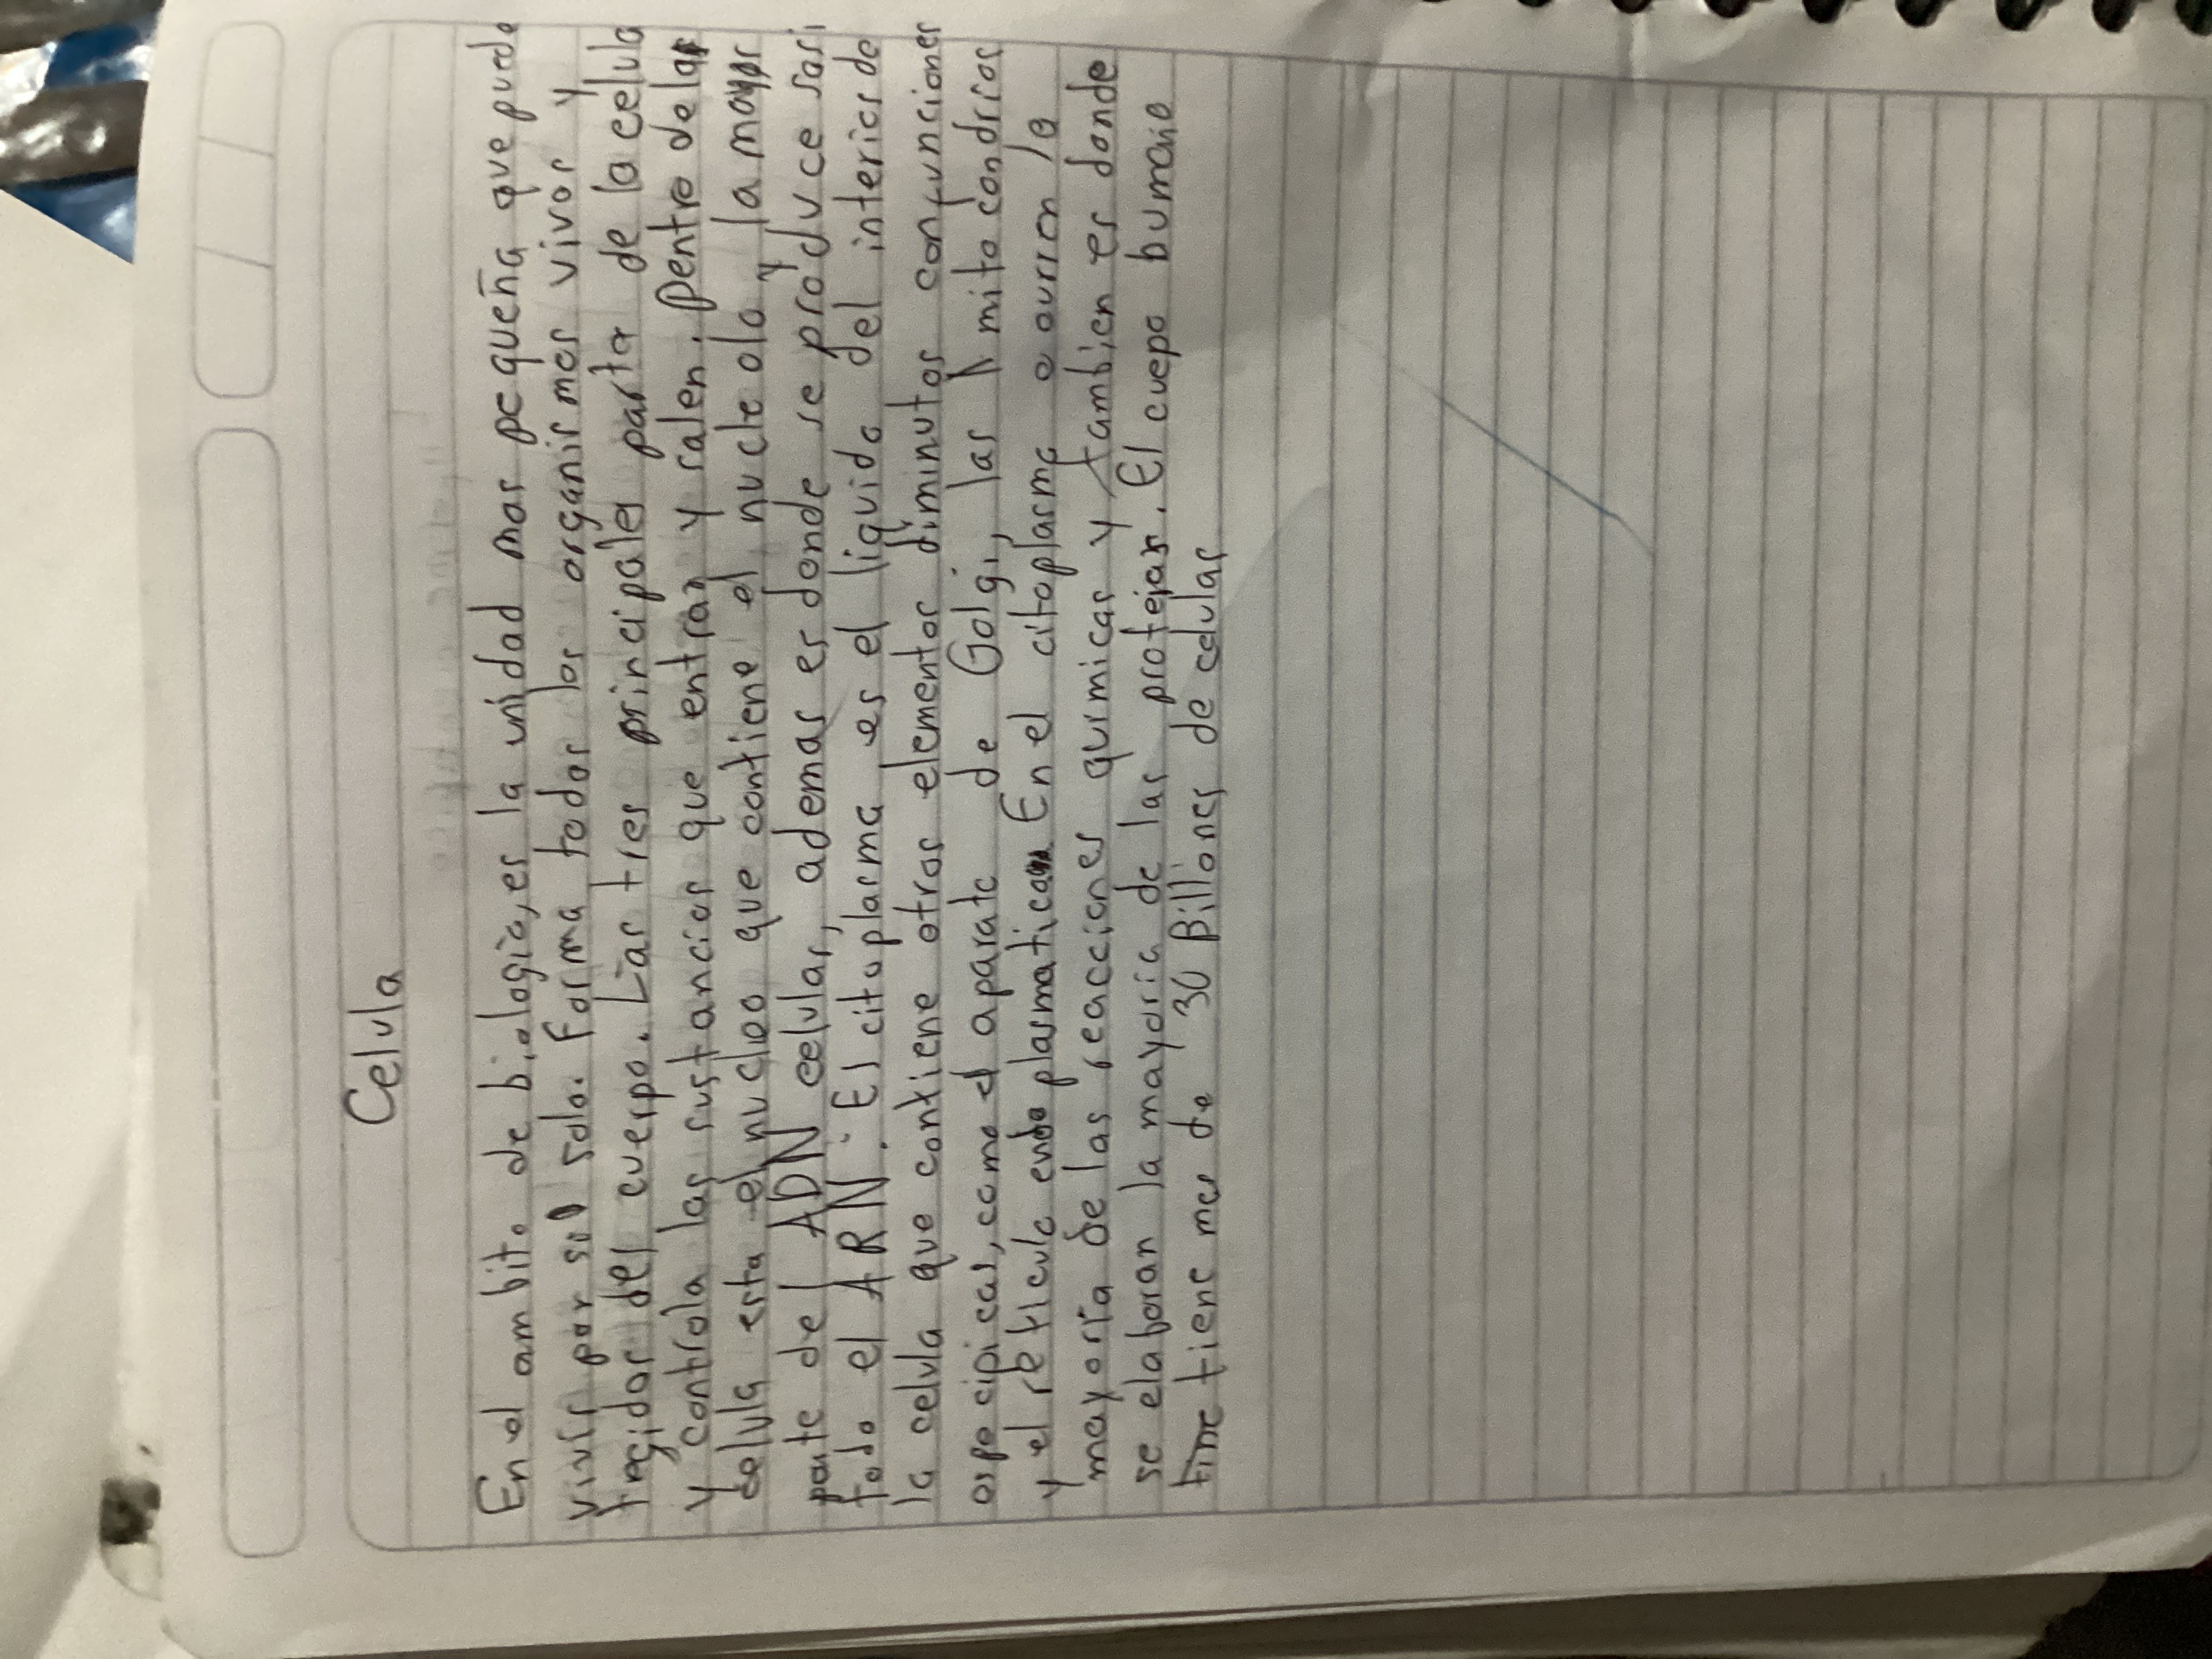 Celula
En el ambito de biologia, es la unidad mas pequeña que puede
vivir por si solo. Forma todos los organismos vivos y
tegidos del cuerpo. Las tres principales parta de la celula
y controla las sustancias que entran y salen. Dentro de la
celula esta el nucleo que contiene el nucleolo y la mayor
parte del ADN celular, ademas es donde se produce sasi
todo el ARN. El citoplasma es el liquido del interior de
la celula que contiene otros elementos diminutos con funciones
espe cipicas, como el aparato de Golgi, las mito condrias
y el reticulo endo plasmatico En el citoplasma o ourren la
mayoria de las reacciones quimicas y tambien es donde
se elaboran la mayoria de las protejas. El cuepo humano
tiene mas de 30 Billones de celulas